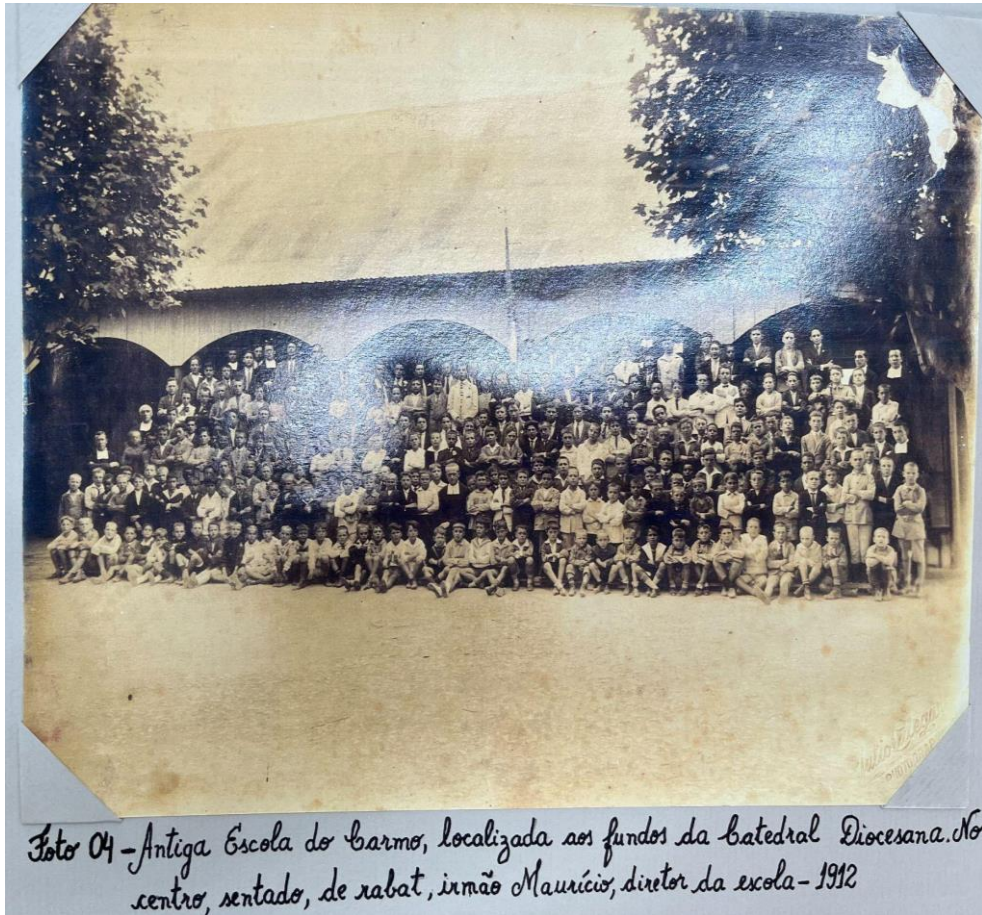 Foto 04 - Antiga Escola do Carmo, localizada aos fundos da Catedral Diocesana. No
centro, sentado, de rabat, irmão Maurício, diretor da escola - 1912